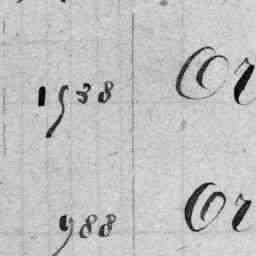 1938 Or
988 Or